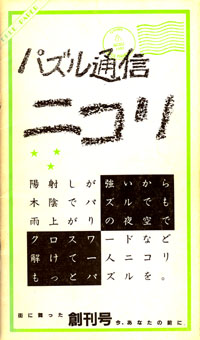 パズル通信
ニコリ
陽射しが強いから
木陰でパズルでも
雨上がりの夜空で
クロスワードなど
解けて一人ニコリ
もっとパズルを。
街に舞った 創刊号 今、あなたの前に